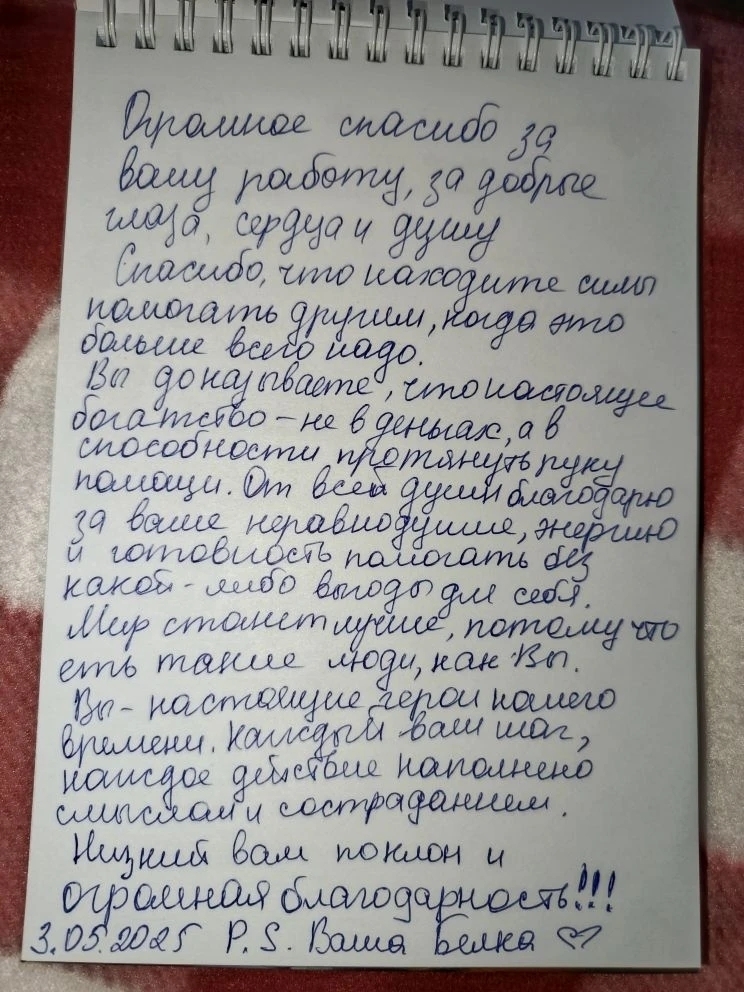 Огромное спасибо за
вашу работу, за добрые
глаза, сердца и душу
Спасибо, что находите силы
помогать другим, когда это
больше всего надо.
Вы доказываете, что настоящее
богатство - не в деньгах, а в
способности протянуть руку
помощи. От всей души благодарю
за ваше неравнодушие, энергию
и готовность помогать без
какой-либо выгоды для себя.
Мир станет лучше, потому что
еть такие люди, как Вы.
Вы - настоящие герои нашего
времени. Каждый ваш шаг,
каждое действие наполнено
смыслом и состраданием.
Низкий вам поклон и
огромная благодарность!!!
3.05.2025 P.S. Ваша Белка ♡